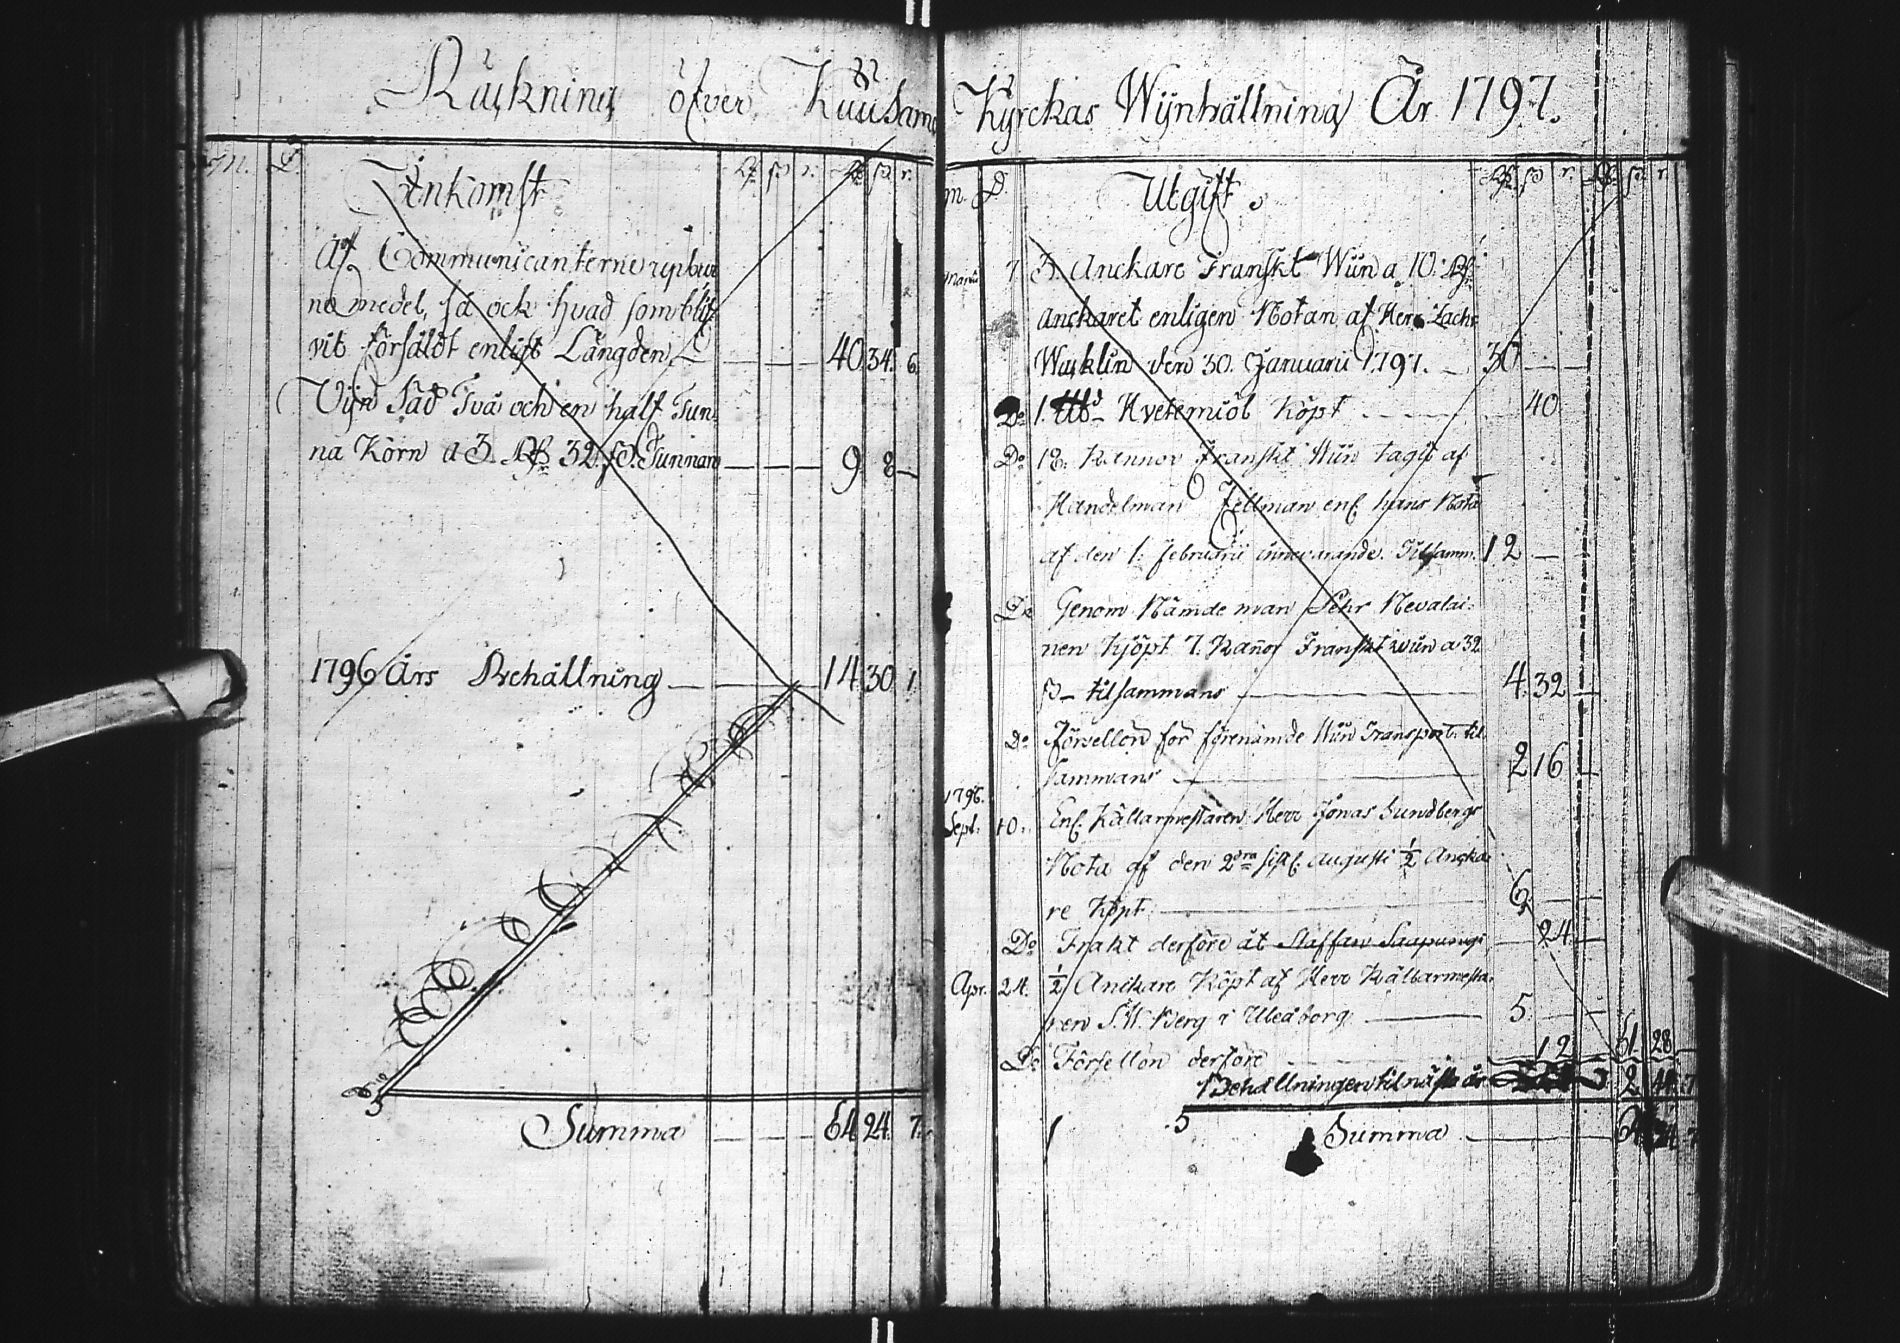 Räckning öfver Kuusamo Kyrckas Wijnhållning År 1797.
M. D. Inkomst Rd. s. r. Rd. s. r.
Af Communicanterne upbur
ne medel, så ock hvad som blif
vit försåldt enligt Längden 40 34. 6.
Vijn Säd Två och en half Tun
na Korn a 3. Rd. 32. s. Tunnan 9 8
1796 Års Behållning 14 30 1
Summa 64 24. 7.
M. D. Utgift Rd. s. r. Rd. s. r.
Martii 7. 3. Anckare Franskt Wiin a 10. Rd.
Anckaret enligen Notan af Herr Zachr
Wacklin den 30. Januarii 1797. 30
Do 1. Lb Hvetemiöl Köpt 40
Do 18. Kannor Franskt Wiin tagit af
Handelman Fellman enl. hans Nota
af den 1. Februarii innevarande. Tilsamm. 12
Do Genom Nämdeman Pehr Nevalai-
nen Kjöpt 7. Kañor Franskt wiin a 32
s tilsammans 4. 32
Do Försellön för förenämde Wiin Transport. til
sammans 2 16
1796.
Sept. 10. Enl. Källarmestaren Herr Jonas Sundbergs
Nota af den 2dra sistl. Augusti ½ Angka
re Köpt 6.
Do Frakt derföre åt Staffan Saapungi 24.
Apr. 24. ½ Anckare Köpt af Herr Källarmesta-
ren S. W. Berg i Uleåborg 5.
Do Försellön derföre 12 61. 28
Behållningen til nästa år 2. 44. 7
Summa 64 24 7